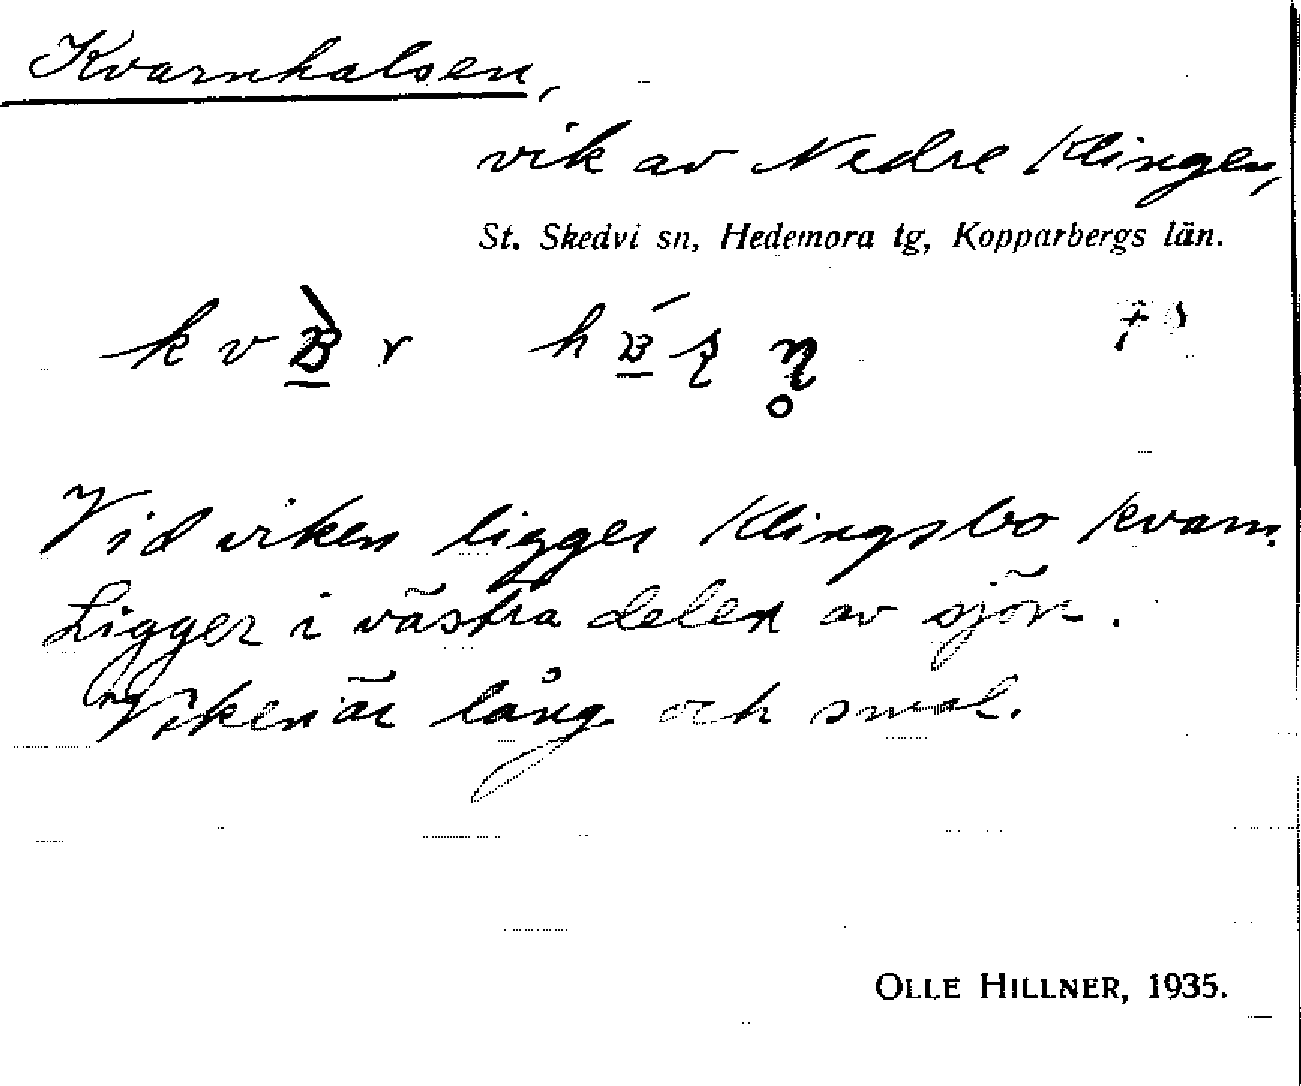 Kvarnhalsen,
vik av Nedre Klingen,
St. Skedvi sn, Hedemora tg, Kopparbergs län.
Vid viken ligger Klingsbo kvarn.
Ligger i västra delen av sjön.
Viken är lång och smal.
OLLE HILLNER, 1935.